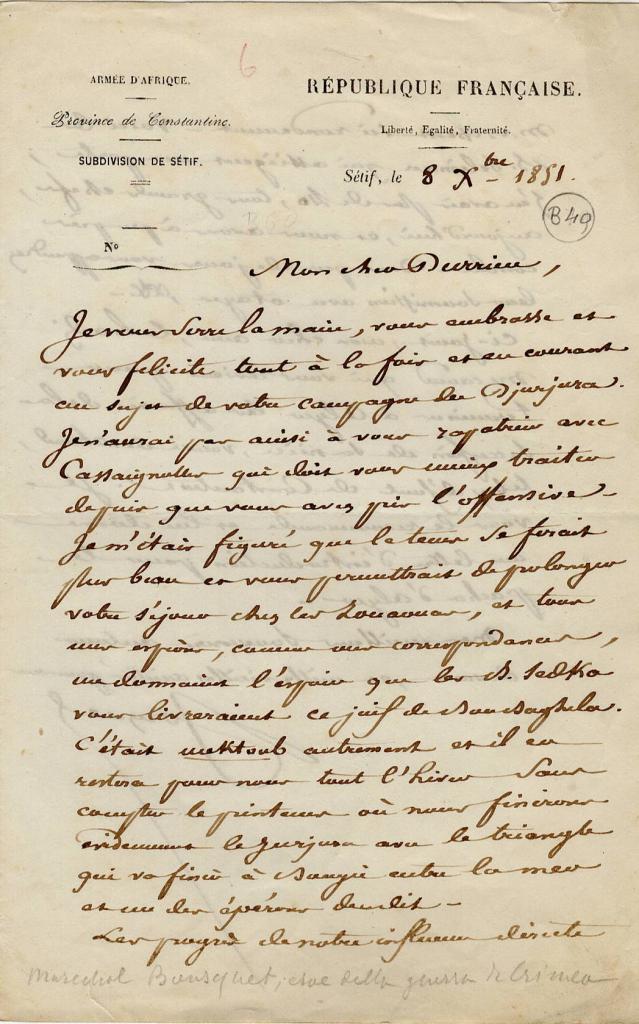 6
ARMÉE D'AFRIQUE.
Province de Constantine.
SUBDIVISION DE SÉTIF.
N°
RÉPUBLIQUE FRANÇAISE.
Liberté, Egalité, Fraternité.
Sétif, le 8 Xbre 1851.
B49
Mon cher Durrieu,
Je vous serre la main, vous embrasse et
vous félicite tout à la fois et en courant
au sujet de votre campagne du Djurjura.
Je n'aurai pas ainsi à vous rapatrier avec
Cassaignolles qui doit vous mieux traiter
depuis que vous avez pris l'offensive.
Je m'étais figuré que le tems se ferait
plus beau et vous permettrait de prolonger
votre séjour chez les Zouaouas, et tous
mes espions, comme mes correspondances,
me donnaient l'espoir que les B. Sedka
vous livreraient ce juif de Bou Baghela.
C'était mektoub autrement et il en
restera pour nous tout l'hiver sans
compter le printems où nous finirons
évidemment le Jurjura avec le triangle
qui va finir à Bougie entre la mer
et un des éperons dudit —
Les progrès de notre influence directe
Marechal Bousquet, eroe della guerra di Crimea